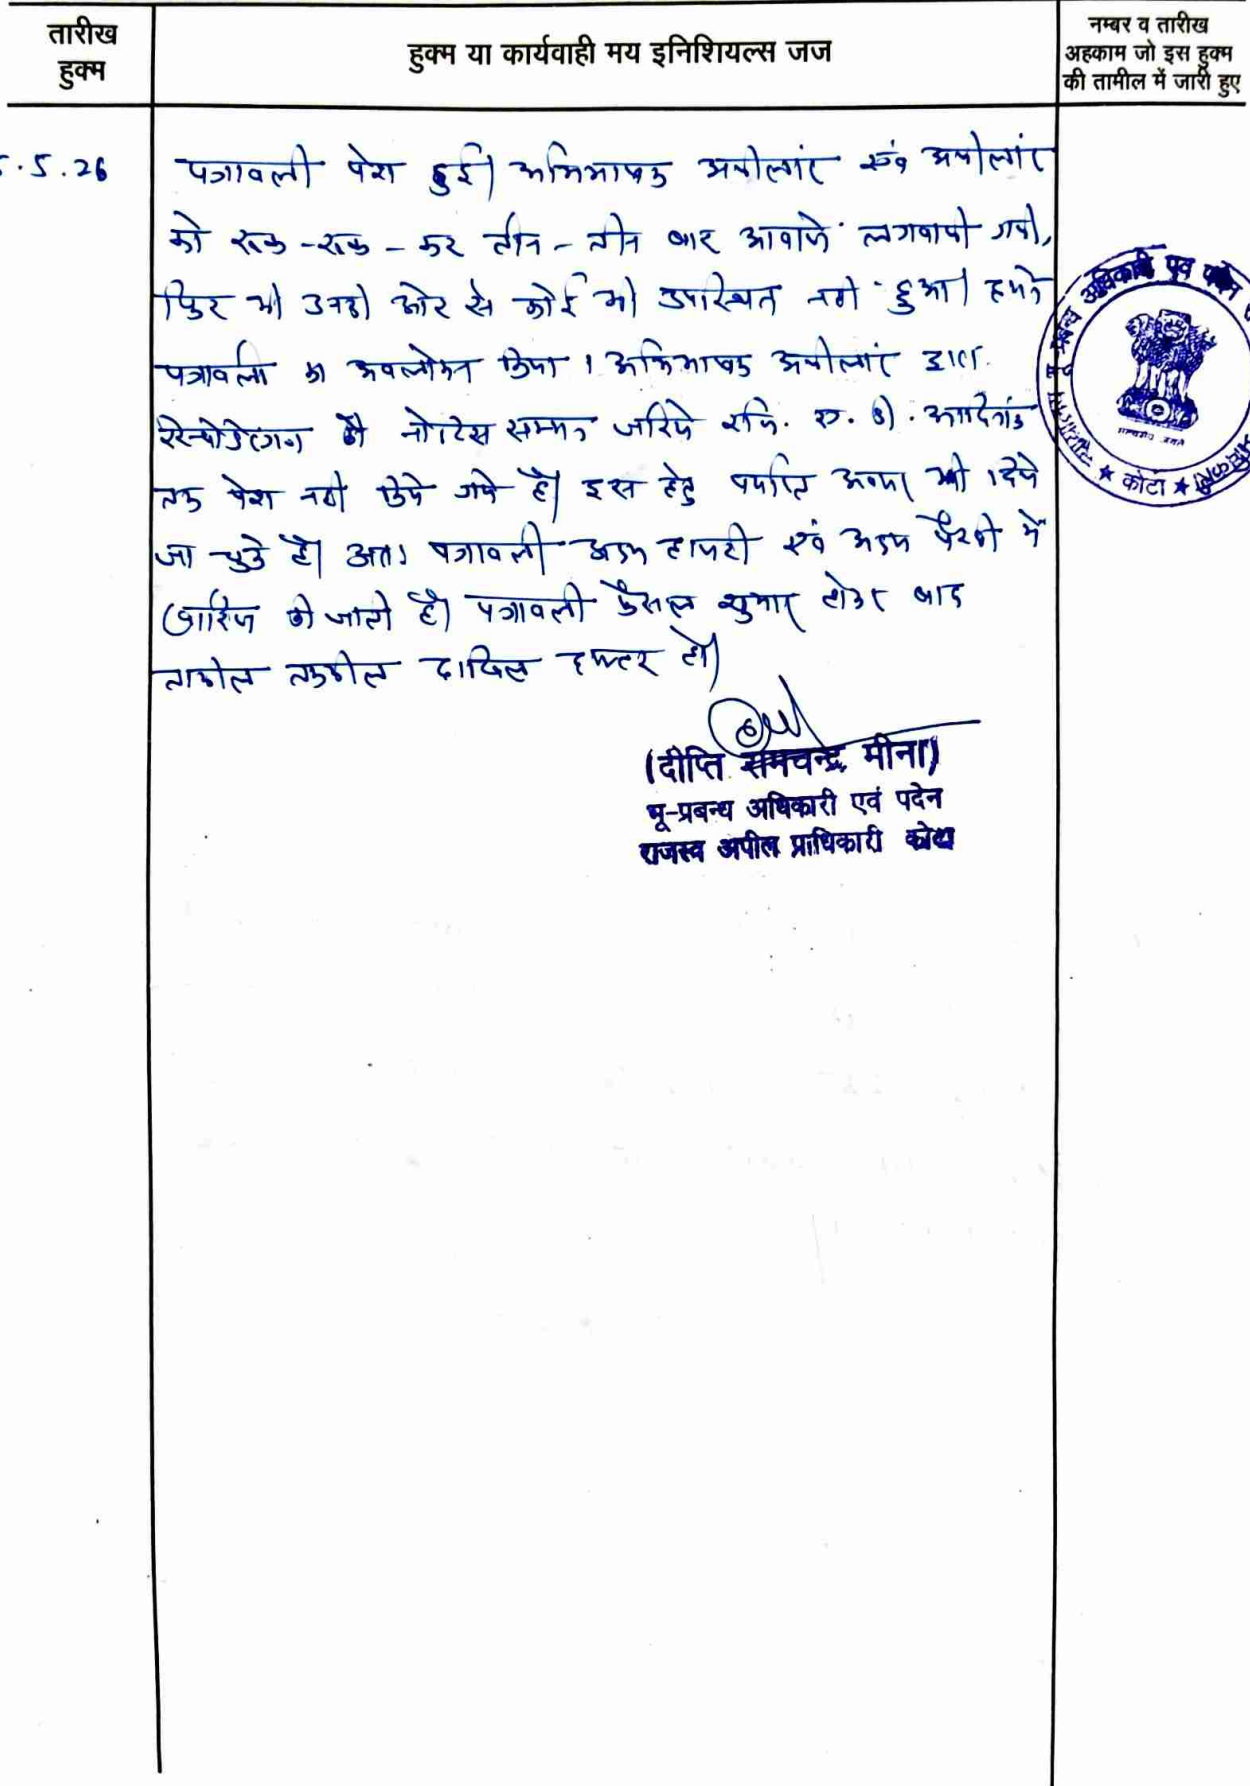 तारीख
हुक्म
हुक्म या कार्यवाही मय इनिशियल्स जज
नम्बर व तारीख
अहकाम जो इस हुक्म
की तामील में जारी हुए
.5.26
पत्रावली पेश हुई। अभिभाषक अपीलांट एवं अपीलांट
को रूक-रूक-कर तीन-तीन बार आवाजें लगवायी गयी,
फिर भी उनकी ओर से कोई भी उपस्थित नहीं हुआ। हमने
पत्रावली का अवलोकन किया। अभिभाषक अपीलांट द्वारा
रेस्पोडेन्टगण के नोटिस सम्मन जरिये रजि. ए. डी. आदिनांक
तक पेश नहीं किये गये है। इस हेतु पर्याप्त अवसर भी दिये
जा चुके है। अतः पत्रावली अदम हाजरी एवं अदम पैरवी में
खारिज की जाती है। पत्रावली फैसल शुमार होकर बाद
तकमील दाखिल दफ्तर हो।
(दीप्ति रामचन्द्र मीना)
भू-प्रबन्ध अधिकारी एवं पदेन
राजस्व अपील प्राधिकारी कोटा
भू-प्रबन्ध अधिकारी एवं पदेन
★ कोटा ★